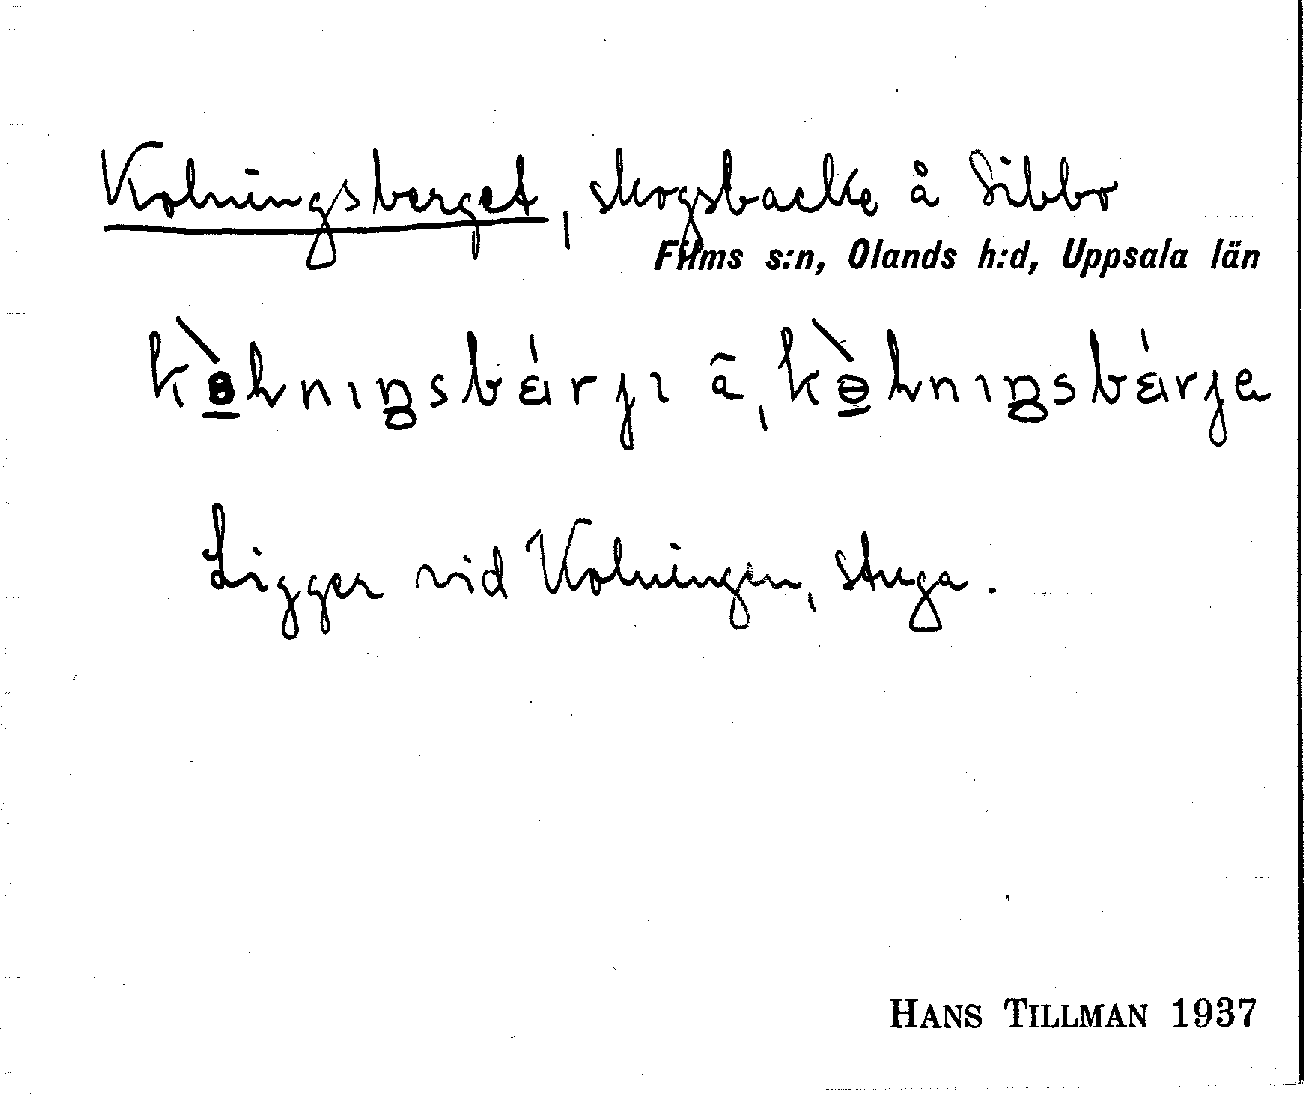 Kolningsberget, skogsbacke å Sibbo
Films s:n, Olands h:d, Uppsala län
kɵ̀lnıŋsbárjı ā, kɵ̀lnıŋsbárja
Ligger vid Kolningen, stuga.
HANS TILLMAN 1937